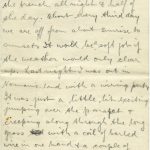 the trench all night & half of
the day. About every third day
we are off from about sunrise to
sunset. It would be a soft job if
the weather would only clear
up. Last night I was out in
Nomans land with a wiring party
It was just a little bit exciting
jumping over the parapet &
creeping along through the long
grass with a coil of barbed
wire in one hand & a couple of